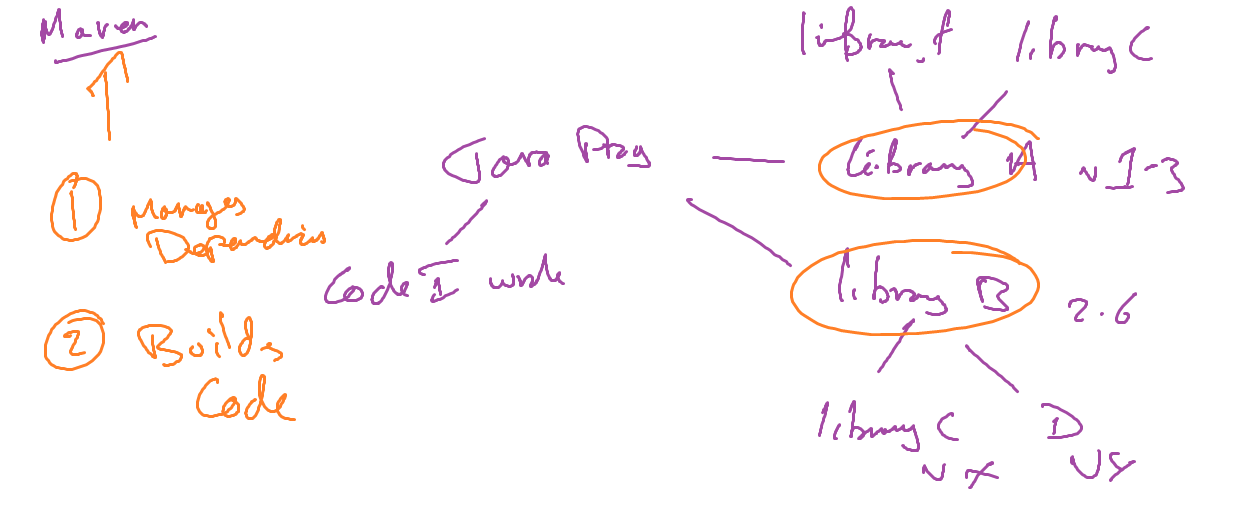 Maven
1 Manages
Dependencies
2 Builds
Code
Java Prog
Code I wrote
library f
library C
library A v 1-3
library B 2.6
library C
v x
D
vy